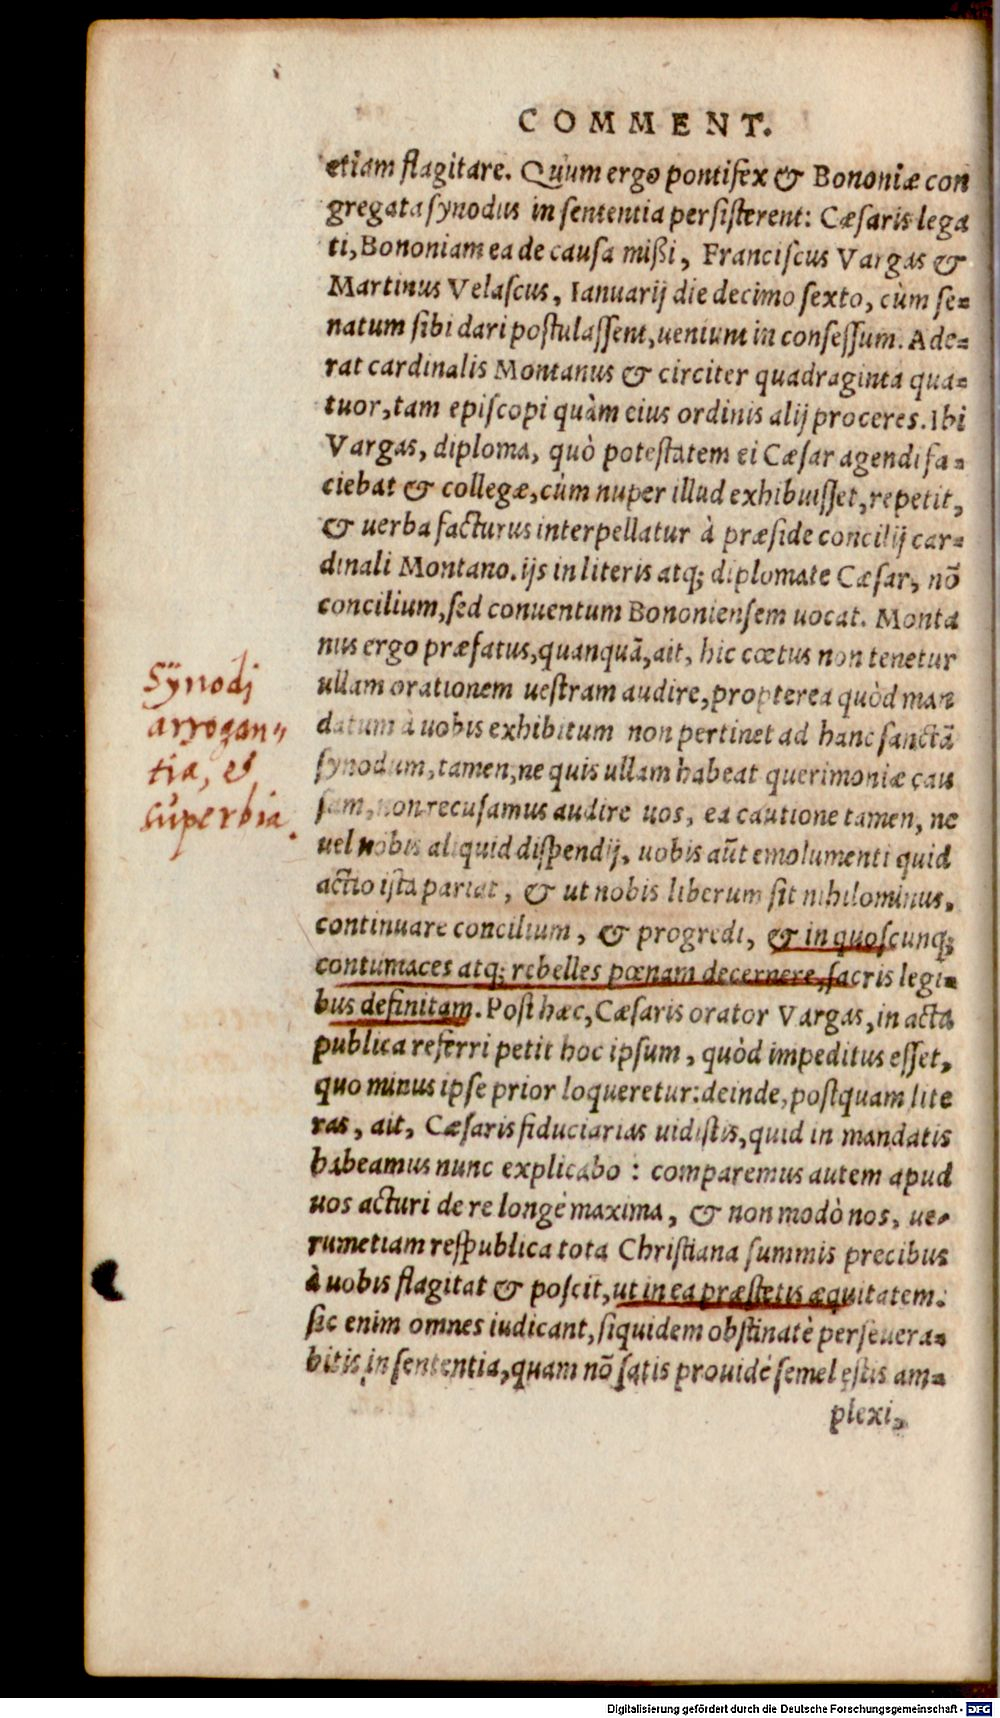 COMMENT.
etiam flagitare. Quum ergo pontifex & Bononiæ con
gregata synodus in sententia persisterent: Cæsaris lega
ti, Bononiam ea de causa mißi, Franciscus Vargas &
Martinus Velascus, Ianuarij die decimo sexto, cùm se=
natum sibi dari postulassent, ueniunt in consessum. Ade=
rat cardinalis Montanus & circiter quadraginta qua=
tuor, tam episcopi quàm eius ordinis alij proceres. Ibi
Vargas, diploma, quò potestatem ei Cæsar agendi fa=
ciebat & collegæ, cùm nuper illud exhibuisset, repetit,
& uerba facturus interpellatur à præside concilij car=
dinali Montano. ijs in literis atq; diplomate Cæsar, nõ
concilium, sed conuentum Bononiensem uocat. Monta
nus ergo præfatus, quanquã, ait, hic cœtus non tenetur
ullam orationem uestram audire, propterea quòd man
datum à uobis exhibitum non pertinet ad hanc sanctã
synodum, tamen, ne quis ullam habeat querimoniæ cau
sam, non recusamus audire uos, ea cautione tamen, ne
uel nobis aliquid dispendij, uobis aũt emolumenti quid
actio ista pariat, & ut nobis liberum sit nihilominus,
continuare concilium, & progredi, & in quoscunq;
contumaces atq; rebelles pœnam decernere, sacris legi=
bus definitam. Post hæc, Cæsaris orator Vargas, in acta
publica referri petit hoc ipsum, quòd impeditus esset,
quo minus ipse prior loqueretur: deinde, postquam lite
ras, ait, Cæsaris fiduciarias uidistis, quid in mandatis
habeamus nunc explicabo: comparemus autem apud
uos acturi de re longè maxima, & non modò nos, ue=
rumetiam respublica tota Christiana summis precibus
à uobis flagitat & poscit, ut in ea præstetis æquitatem:
sic enim omnes iudicant, siquidem obstinatè perseuera=
bitis in sententia, quam nõ satis prouidè semel estis am=
plexi,
Synodi
arrogan=
tia, et
superbia.
Digitalisierung gefördert durch die Deutsche Forschungsgemeinschaft - DFG